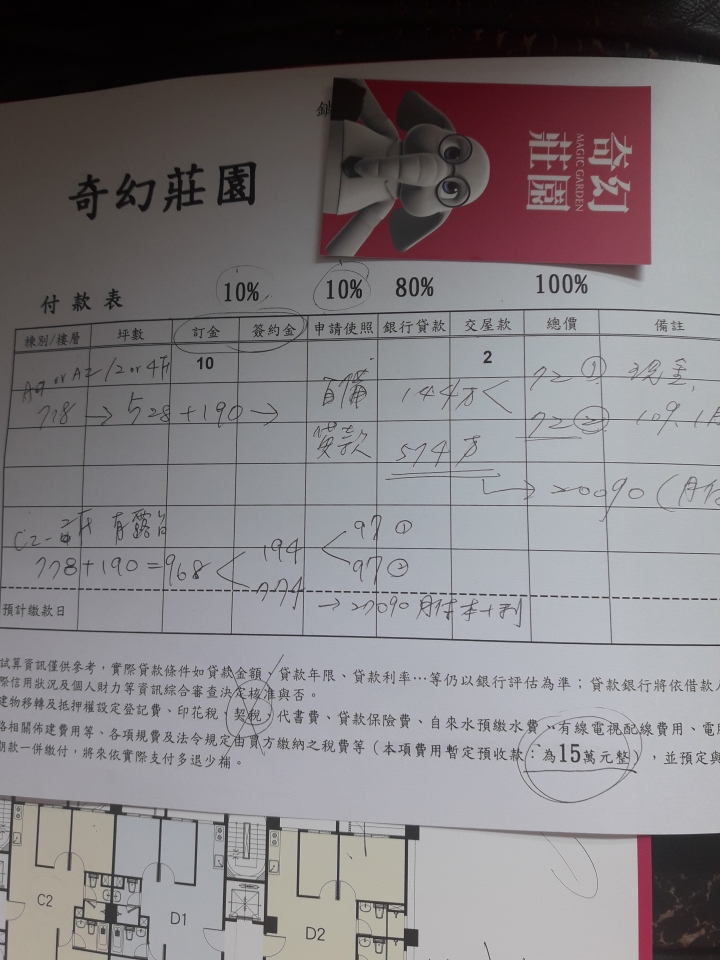 奇幻莊園
奇幻莊園
MAGIC GARDEN
付款表
10% 10% 80% 100%
棟別/樓層 坪數 訂金 簽約金 申請使照 銀行貸款 交屋款 總價 備註
A9 or A2 / 2 or 4F 10 2 72 ① 現金
718 → 528 + 190 → 自備 144万 < 72 ②
貸款 574万
→ 20090 (月付
C2-
有露台
778 + 190 = 968 < 194 < 97 ①
97 ②
774
預計繳款日 → 27090 月付本+利
試算資訊僅供參考，實際貸款條件如貸款金額、貸款年限、貸款利率…等仍以銀行評估為準；貸款銀行將依借款人
際信用狀況及個人財力等資訊綜合審查決定核准與否。
建物移轉及抵押權設定登記費、印花稅、契稅，代書費、貸款保險費、自來水預繳水費、有線電視配線費用、電
各相關佈建費用等、各項規費及法令規定由買方繳納之稅費等（本項費用暫定預收款：為15萬元整），並預定與
期款一併繳付，將來依實際支付多退少補。
C2 D1 D2